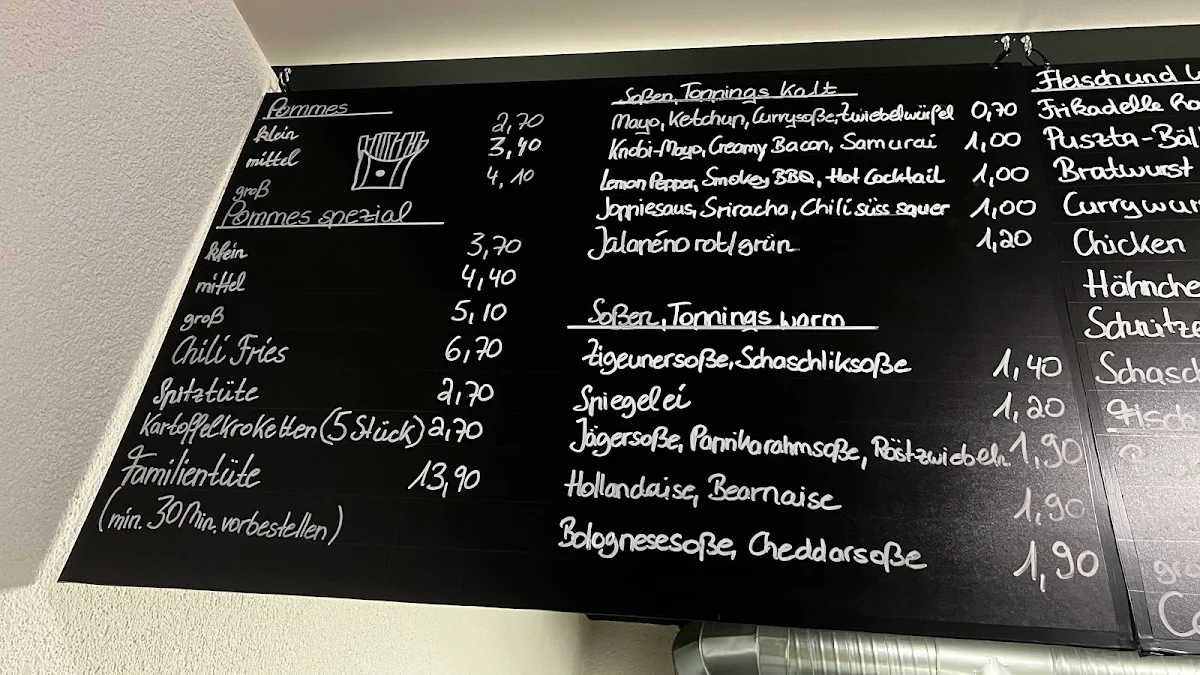 Pommes
klein 2,70
mittel 3,40
groß 4,10
Pommes spezial
klein 3,70
mittel 4,40
groß 5,10
Chili Fries 6,70
Spitztüte 2,70
Kartoffelkroketten (5 Stück) 2,70
Familientüte 13,90
(min. 30 Min. vorbestellen)
Soßen, Toppings kalt
Mayo, Ketchup, Currysoße, Zwiebelwürfel 0,70
Knobi-Mayo, Creamy Bacon, Samurai 1,00
Lemon Pepper, Smokey BBQ, Hot Cocktail 1,00
Joppiesaus, Sriracha, Chili süss sauer 1,00
Jalapéno rot/grün 1,20
Soßen, Toppings warm
Zigeunersoße, Schaschliksoße 1,40
Spiegelei 1,20
Jägersoße, Paprikarahmsoße, Röstzwiebeln 1,90
Hollandaise, Bearnaise 1,90
Bolognesesoße, Cheddarsoße 1,90
Fleisch und
Frikadelle
Puszta-
Bratwurst
Currywur
Chicken
Hähnche
Schnitze
Schasch
Fisch